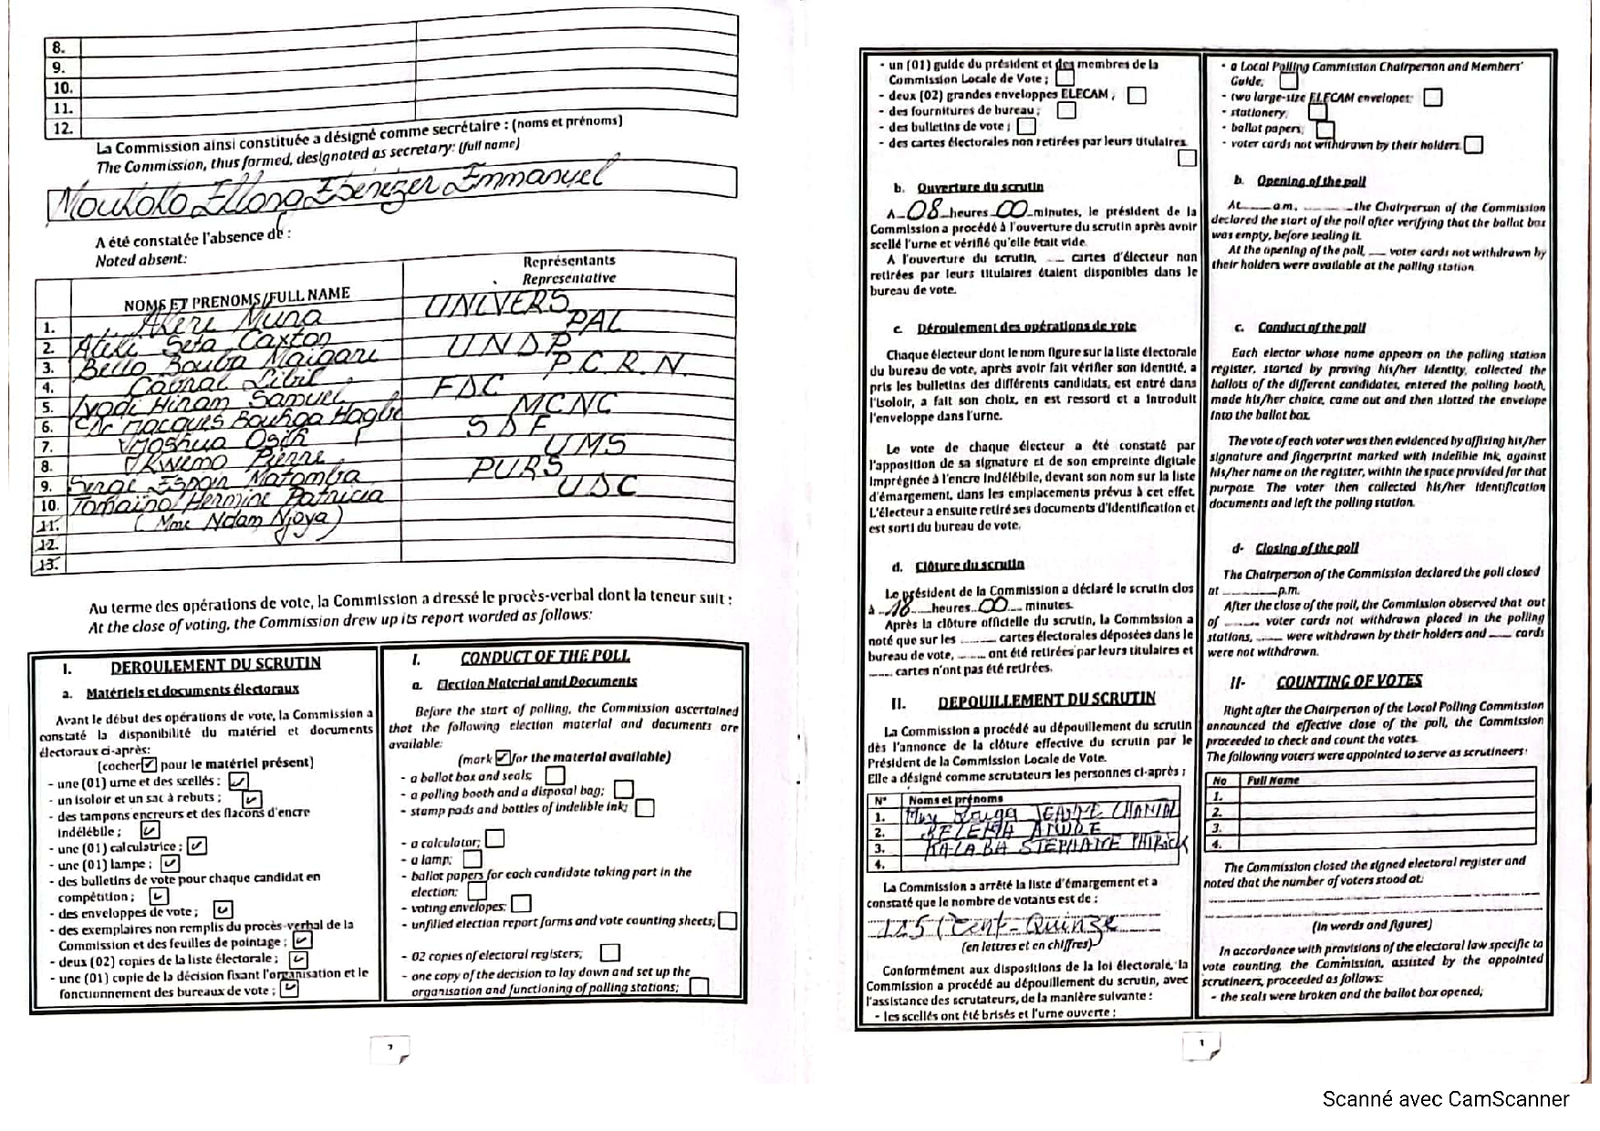 8.
9.
10.
11.
12.
La Commission ainsi constituée a désigné comme secrétaire : (noms et prénoms)
The Commission, thus formed, designated as secretary: (full name)
Moukoko Ebenezer Emmanuel
A été constatée l'absence de :
Noted absent:
NOMS ET PRENOMS/FULL NAME
Représentants
Representative
1. Akere Muna UNIVERS
2. Ateki Seta Caxton PAL
3. Bello Bouba Maigari UNDP
4. Cabral Libii P.C.R.N.
5. Iyodi Hiram Samuel FDC
6. Jacques Bouhga Hagbe MCNC
7. Joshua Osih SDF
8. Kwemo Pierre UMS
9. Serge Espoir Matomba PURS
10. Tomaino Hermine Patricia UDC
11. (Mme Ndam Njoya)
12.
13.
Au terme des opérations de vote, la Commission a dressé le procès-verbal dont la teneur suit :
At the close of voting, the Commission drew up its report worded as follows:
I. DEROULEMENT DU SCRUTIN
a. Matériels et documents électoraux
Avant le début des opérations de vote, la Commission a
constaté la disponibilité du matériel et documents
électoraux ci-après:
(cocher ✓ pour le matériel présent)
- une (01) urne et des scellés ; ✓
- un isoloir et un sac à rebuts ; ✓
- des tampons encreurs et des flacons d'encre
indélébile ; ✓
- une (01) calculatrice ; ✓
- une (01) lampe ; ✓
- des bulletins de vote pour chaque candidat en
compétition ; ✓
- des enveloppes de vote ; ✓
- des exemplaires non remplis du procès-verbal de la
Commission et des feuilles de pointage ; ✓
- deux (02) copies de la liste électorale ; ✓
- une (01) copie de la décision fixant l'organisation et le
fonctionnement des bureaux de vote ; ✓
I. CONDUCT OF THE POLL
a. Election Material and Documents
Before the start of polling, the Commission ascertained
that the following election material and documents are
available:
(mark ✓ for the material available)
- a ballot box and seals;
- a polling booth and a disposal bag;
- stamp pads and bottles of indelible ink;
- a calculator;
- a lamp;
- ballot papers for each candidate taking part in the
election;
- voting envelopes;
- unfilled election report forms and vote counting sheets;
- 02 copies of electoral registers;
- one copy of the decision to lay down and set up the
organisation and functioning of polling stations;
2
- un (01) guide du président et des membres de la
Commission Locale de Vote ;
- deux (02) grandes enveloppes ELECAM ;
- des fournitures de bureau ;
- des bulletins de vote ;
- des cartes électorales non retirées par leurs titulaires
b. Ouverture du scrutin
A 08 heures 00 minutes, le président de la
Commission a procédé à l'ouverture du scrutin après avoir
scellé l'urne et vérifié qu'elle était vide.
A l'ouverture du scrutin, ___ cartes d'électeur non
retirées par leurs titulaires étaient disponibles dans le
bureau de vote.
c. Déroulement des opérations de vote
Chaque électeur dont le nom figure sur la liste électorale
du bureau de vote, après avoir fait vérifier son identité, a
pris les bulletins des différents candidats, est entré dans
l'isoloir, a fait son choix, en est ressorti et a introduit
l'enveloppe dans l'urne.
Le vote de chaque électeur a été constaté par
l'apposition de sa signature et de son empreinte digitale
imprégnée à l'encre indélébile, devant son nom sur la liste
d'émargement, dans les emplacements prévus à cet effet.
L'électeur a ensuite retiré ses documents d'identification et
est sorti du bureau de vote.
d. Clôture du scrutin
Le président de la Commission a déclaré le scrutin clos
à 18 heures 00 minutes.
Après la clôture officielle du scrutin, la Commission a
noté que sur les ______ cartes électorales déposées dans le
bureau de vote, _____ ont été retirées par leurs titulaires et
____ cartes n'ont pas été retirées.
II. DEPOUILLEMENT DU SCRUTIN
La Commission a procédé au dépouillement du scrutin
dès l'annonce de la clôture effective du scrutin par le
Président de la Commission Locale de Vote.
Elle a désigné comme scrutateurs les personnes ci-après :
N° Noms et prénoms
1. JEANNE CHANTAL
2. BELEMA ANDRE
3. KALABA STEPHANE PATRICK
4.
La Commission a arrêté la liste d'émargement et a
constaté que le nombre de votants est de :
115 (Cent-Quinze
(en lettres et en chiffres)
Conformément aux dispositions de la loi électorale, la
Commission a procédé au dépouillement du scrutin, avec
l'assistance des scrutateurs, de la manière suivante :
- les scellés ont été brisés et l'urne ouverte ;
- a Local Polling Commission Chairperson and Members'
Guide;
- two large-size ELECAM envelopes;
- stationery;
- ballot papers;
- voter cards not withdrawn by their holders
b. Opening of the poll
At____a.m, _______the Chairperson of the Commission
declared the start of the poll after verifying that the ballot box
was empty, before sealing it.
At the opening of the poll, ___ voter cards not withdrawn by
their holders were available at the polling station
c. Conduct of the poll
Each elector whose name appears on the polling station
register, started by proving his/her identity, collected the
ballots of the different candidates, entered the polling booth,
made his/her choice, came out and then slotted the envelope
into the ballot box.
The vote of each voter was then evidenced by affixing his/her
signature and fingerprint marked with indelible ink, against
his/her name on the register, within the space provided for that
purpose. The voter then collected his/her identification
documents and left the polling station.
d- Closing of the poll
The Chairperson of the Commission declared the poll closed
at _________p.m.
After the close of the poll, the Commission observed that out
of ______ voter cards not withdrawn placed in the polling
stations, ____ were withdrawn by their holders and ____ cards
were not withdrawn.
II- COUNTING OF VOTES
Right after the Chairperson of the Local Polling Commission
announced the effective close of the poll, the Commission
proceeded to check and count the votes.
The following voters were appointed to serve as scrutineers:
No Full Name
1.
2.
3.
4.
The Commission closed the signed electoral register and
noted that the number of voters stood at:
(In words and figures)
In accordance with provisions of the electoral law specific to
vote counting, the Commission, assisted by the appointed
scrutineers, proceeded as follows:
- the seals were broken and the ballot box opened;
Scanné avec CamScanner